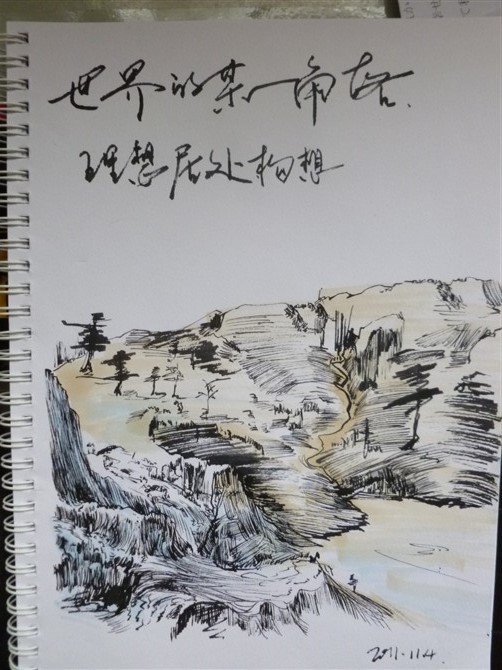 世界的某一角落.
理想居处构想
2011.11.4.